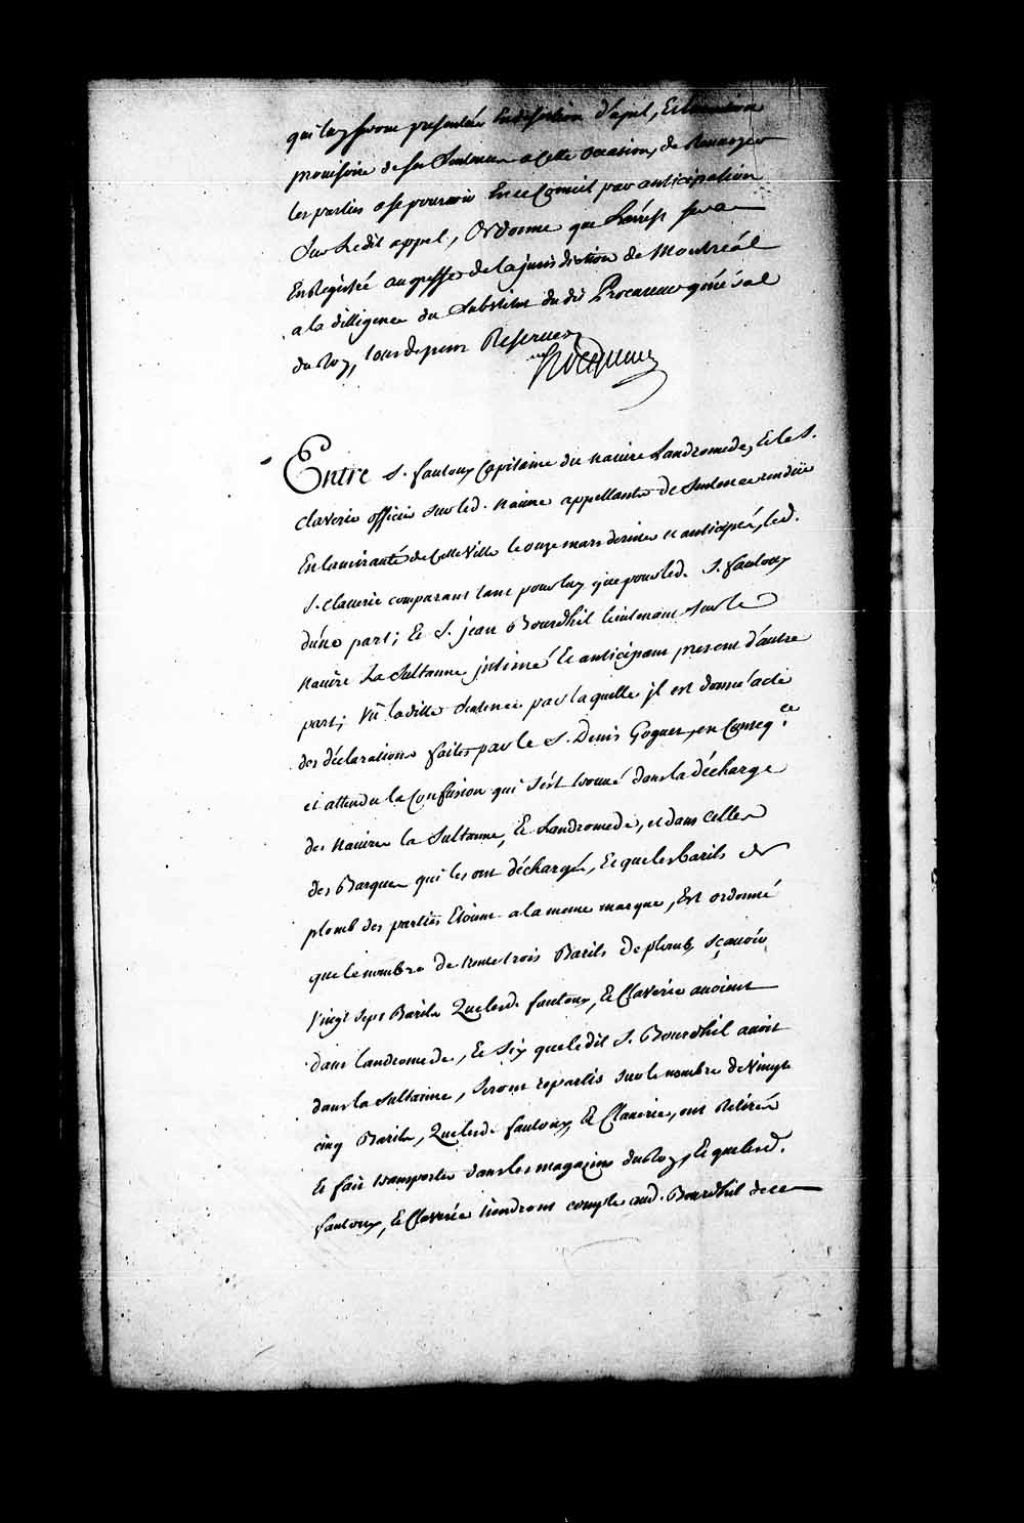 qui luy seront presentées d'apel, Et
provisoire de ses Sentences a Cette occasion, de Renvoyer
les parties a se pourvoir En ce Conseil par anticipation
Sur Ledit appel, Ordonne que Larrest sera
Enregistré au greffe de la jurisdiction de Montreál
a la dilligence du Substitut du dit Procureur général
du Roy, tous depens Reservez
Hocquart
Entre S. fautoux Capitaine du navire Landromede, Et le S.
Claverie officier sur led. navire appellants de Sentence rendüe
En Lamirauté de Cette Ville le onze mars dernier et anticipés, led.
S. claverie comparant tant pour luy que pour led. S. fautoux
d'une part; Et S. jean Bourdhil lieutenant sur le
navire La Sultanne intimé Et anticipant present d'autre
part; Vû laditte Sentence par laquelle jl est donné acte
des déclarations faites par le S. Denis Goguet, en Conseq.ce
et attendu la Confusion qui s'est trouvé dans la décharge
des navires la Sultanne, Et Landromede, et dans celles
des Barques qui les ont déchargé, Et que les barils de
plomb des parties Etoient a la meme marque, Est ordonné
que le nombre de trente trois Barils de plomb, sçavoir
Vingt sept Barils Que lesd. fautoux, Et Claverie avoient
dans landromede, Et Six que le dit S. Bourdhil avoit
dans la Sultanne, Seront repartis sur le nombre de Vingt
cinq Barils, Que lesd. fautoux, Et Claverie, ont Retirés
Et fait transporter dans les magazins du Roy, Et que lesd.
fautoux, Et Claverie tiendront compte aud. Bourdhil de ce